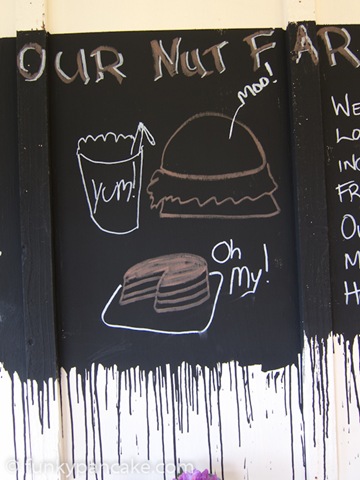 OUR NUT FAR
MOO!
YUM!
Oh
My!
WE
LO
ING
FR
OU
M
H
©funkypancake.com